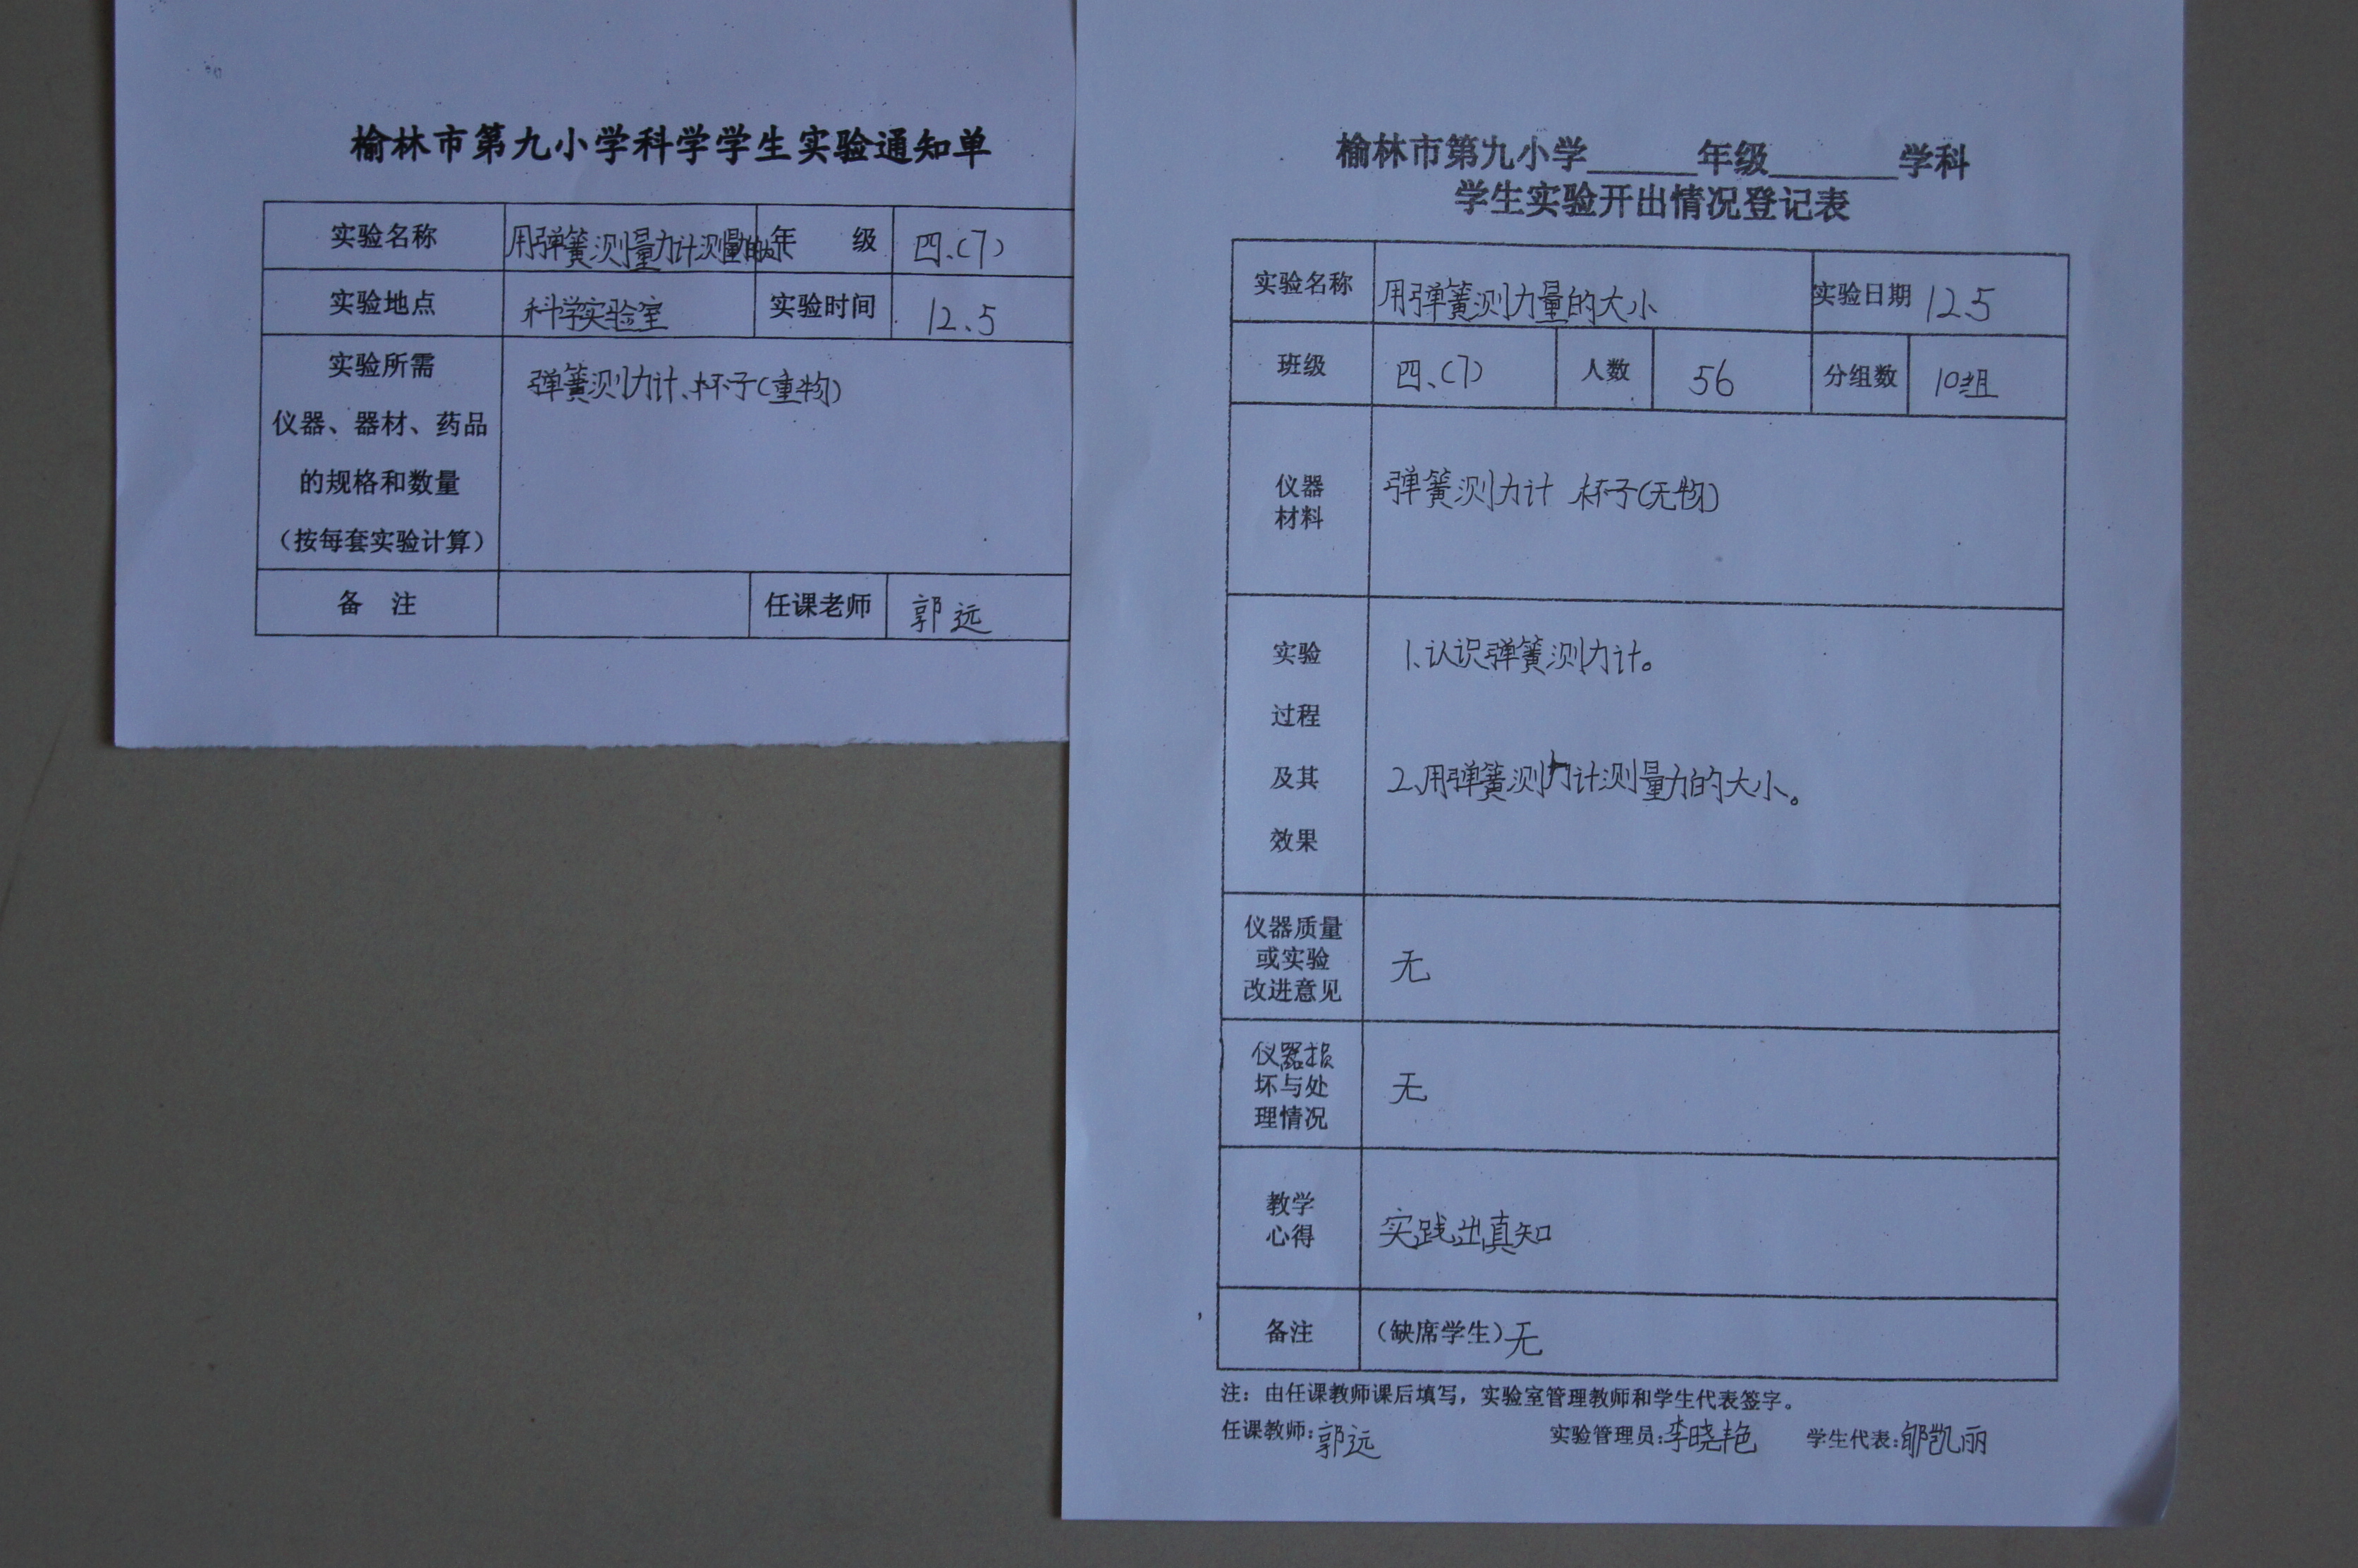 榆林市第九小学科学学生实验通知单
实验名称 用弹簧测量力计测量的大 年 级 四.(7)
实验地点 科学实验室 实验时间 12.5
实验所需
仪器、器材、药品
的规格和数量
（按每套实验计算）
弹簧测力计、杯子(重物)
备 注 任课老师 郭远
榆林市第九小学______年级_______学科
学生实验开出情况登记表
实验名称 用弹簧测力量的大小 实验日期 12.5
班级 四、(7) 人数 56 分组数 10组
仪器
材料
弹簧测力计 杯子(无物)
实验
过程
及其
效果
1、认识弹簧测力计。
2、用弹簧测力计测量力的大小。
仪器质量
或实验
改进意见
无
仪器损
坏与处
理情况
无
教学
心得
实践出真知
备注 （缺席学生）无
注：由任课教师课后填写，实验室管理教师和学生代表签字。
任课教师:郭远 实验管理员:李晓艳 学生代表:郇凯丽